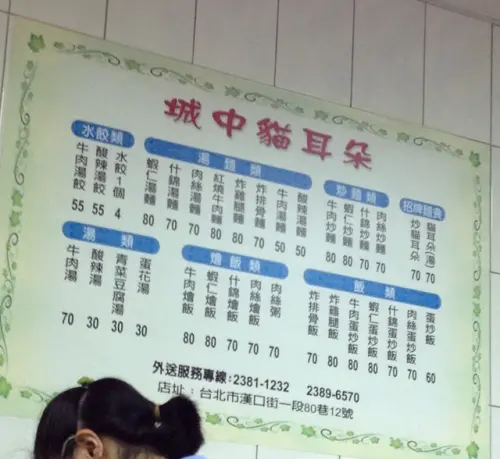 城中貓耳朵
水餃類
牛肉湯餃 55
酸辣湯餃 55
水餃1個 4
湯麵類
蝦仁湯麵 80
什錦湯麵 70
肉絲湯麵 70
紅燒牛肉麵 80
炸雞腿麵 80
炸排骨麵 70
牛肉湯麵 50
酸辣湯麵 50
炒麵類
牛肉炒麵 80
蝦仁炒麵 80
什錦炒麵 70
肉絲炒麵 70
招牌麵食
炒貓耳朵 70
貓耳朵(湯) 70
湯類
牛肉湯 70
酸辣湯 30
青菜豆腐湯 30
蛋花湯 30
燴飯類
牛肉燴飯 80
蝦仁燴飯 80
什錦燴飯 70
肉絲燴飯 70
肉絲粥 70
飯類
炸排骨飯 70
炸雞腿飯 80
牛肉蛋炒飯 80
蝦仁蛋炒飯 80
什錦蛋炒飯 70
肉絲蛋炒飯 70
蛋炒飯 60
外送服務專線:2381-1232 2389-6570
店址:台北市漢口街一段80巷12號